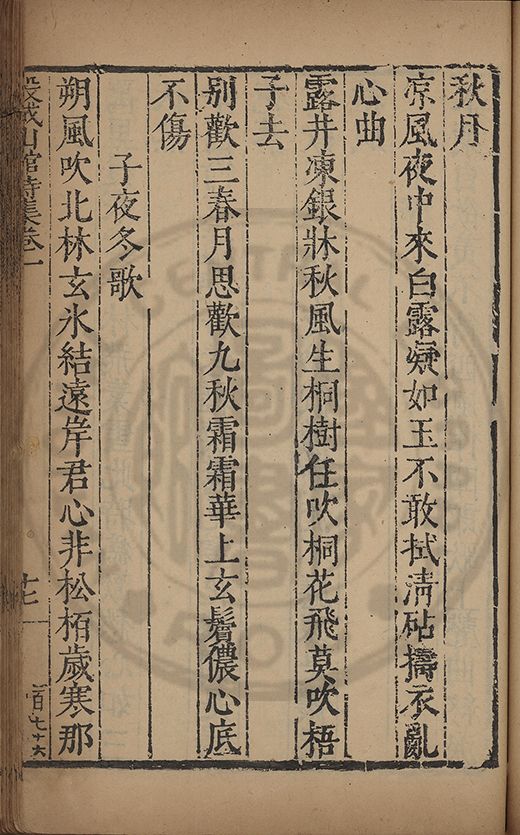 秋月
凉風夜中來白露凝如玉不敢拭清砧擣衣亂
心曲
露井凍銀牀秋風生桐樹任吹桐花飛莫吹梧
子去
别歡三春月思歡九秋霜霜華上玄鬢儂心底
不傷
子夜冬歌
朔風吹北林玄氷結遠岸君心非松栢歲寒那
山館詩集卷一
十七
百七十六